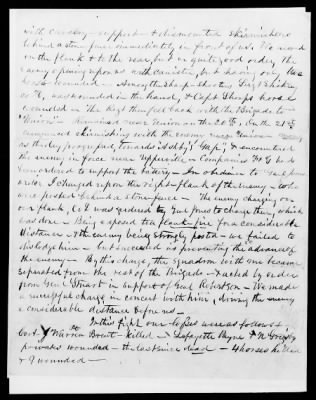 with cavalry - support & dismounted skirmishers
behind a stone fence immediately in front of us. We moved
on the flank & to the rear, but in quite good order, the
enemy opening upon us with canister, but having only two
horses wounded - Among the sharpshooters Sergt
Co "G," was wounded in the hand, & Capt Sharps horse
wounded - The Regt then fell back with the Brigade to
"Union" - Remained near Union on the 20th; On the 21st
commenced skirmishing with the enemy near Union - moving
as the day progressed, towards Ashby's "Gap," & encountered
the enemy in force near Upperville - Companies "F & G" had
been ordered to support the battery - In obedience to
order I charged upon the right flank of the enemy - who
were posted behind a stone fence - the enemy charging on
our flank, Co was ordered by to charge them, which
was done - Being exposed to a flank fire for a considerable
distance - & the enemy being strongly posted - we failed to
dislodge him - but succeeded in preventing the advance of
the enemy - By this charge, the Squadron with me became
separated from the rest of the Brigade - & acted by order
from Genl Stuart in support of Genl Robertson - We made
a successful charge in concert with him, driving the enemy
a considerable distance before us -
In this fight our losses were as follows:
Corpl Warren Brent - killed - Lafayette Payne & N
privates wounded - the last since dead - 4 horses killed
& 9 wounded -